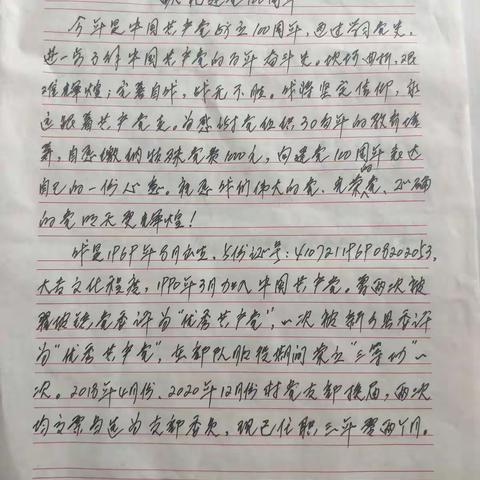 献礼建党100周年
今年是中国共产党成立100周年，通过学习党史，
进一步了解中国共产党的百年奋斗史。坎坷曲折，艰
难辉煌；完善自我，战无不胜。我将坚定信仰，永
远跟着共产党走。为感谢党组织30多年的教育培
养，自愿缴纳特殊党费1000元，向建党100周年表达
自己的一份心意。祝愿我们伟大的党、光荣的党、正确
的党明天更辉煌！
我是1969年8月出生，身份证号：
大专文化程度，1990年3月加入中国共产党。曾两次被
党委评为“优秀共产党”，一次被新乡县委评
为“优秀共产党”，在部队服役期间荣立“三等功”一
次。2018年4月份、2020年12月份村党支部换届，两次
均全票当选为支部委员，现已任职三年零两个月。